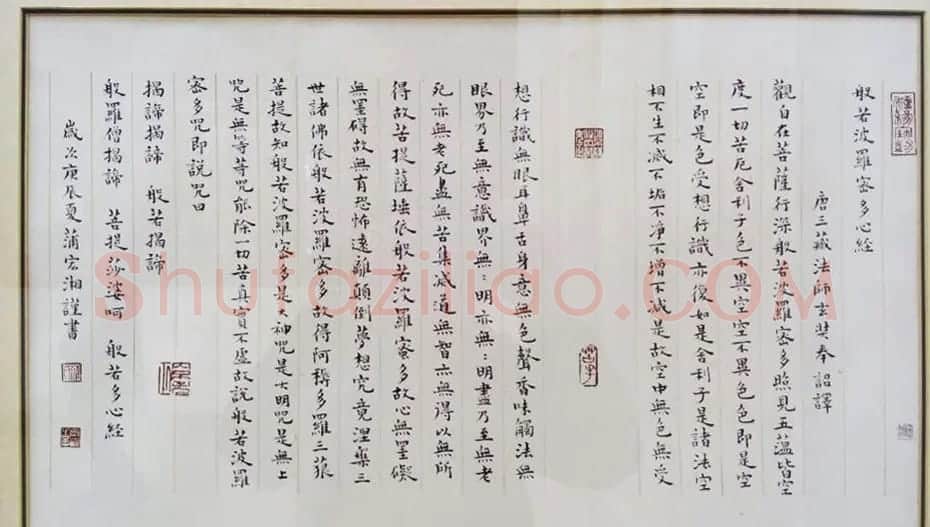 般若波羅密多心經
唐三藏法師玄奘奉詔譯
觀自在菩薩行深般若波羅密多照見五蘊皆空
度一切苦厄舍利子色不異空空不異色色即是空
空即是色受想行識亦復如是舍利子是諸法空
相不生不滅不垢不淨不增不減是故空中無色無受
想行識無眼耳鼻舌身意無色聲香味觸法無
眼界乃至無意識界無:明亦無:明盡乃至無老
死亦無老死盡無苦集滅道無智亦無得以無所
得故菩提薩埵依般若波羅蜜多故心無罣礙
無罣礙故無有恐怖遠離顛倒夢想究竟涅槃三
世諸佛依般若波羅密多故得阿耨多羅三藐
菩提故知般若波羅密多是大神咒是大明咒是無上
咒是無等等咒能除一切苦真實不虛故說般若波羅
密多咒即說咒曰
揭諦揭諦 般若揭諦
般羅僧揭諦 菩提莎婆呵 般若多心經
歲次庚辰夏蒲宏湘謹書
Shufaziliao.COM